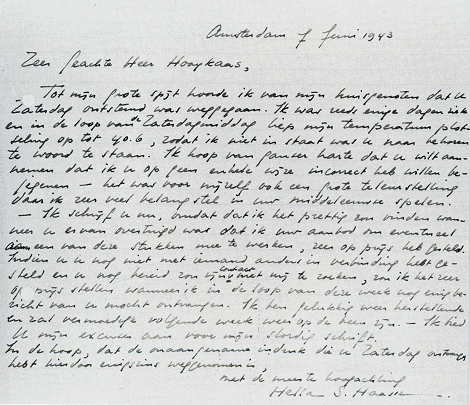 Amsterdam 7 Juni 1943
Zeer Geachte Heer Hooykaas,
Tot mijn grote spijt hoorde ik van mijn huisgenoten dat U
Zaterdag ontstemd was weggegaan. Ik was reeds enige dagen ziek
en in de loop van de Zaterdagmiddag liep mijn temperatuur plot
seling op tot 40.6, zodat ik niet in staat was U naar behoren
te woord te staan. Ik hoop van ganser harte dat U wilt aan-
nemen dat ik U op geen enkele wijze incorrect heb willen be-
jegenen — het was voor mijzelf ook een grote teleurstelling
daar ik zeer veel belang stel in uw middeleeuwse spelen.
— Ik schrijf U nu, omdat dat ik het prettig zou vinden wan-
neer U ervan overtuigd was dat ik uw aanbod om eventueel
aan een van deze stukken mee te werken, zeer op prijs heb gesteld.
Indien U nog niet met iemand anders in verbinding hebt ge-
steld en U nog bereid zou zijn contact met mij te zoeken, zou ik het zeer
op prijs stellen wanneer ik in de loop van deze week nog enig be-
richt van U mocht ontvangen. Ik ben gelukkig weer herstellende
en zal vermoedelijk volgende week weer op de been zijn. — Ik bied
U mijn excuses aan voor mijn slordig schrift.
In de hoop, dat de onaangename indruk die U Zaterdag ontving
hebt hierdoor enigszins weggenomen is,
met de meeste hoogachting
Hella S. Haasse